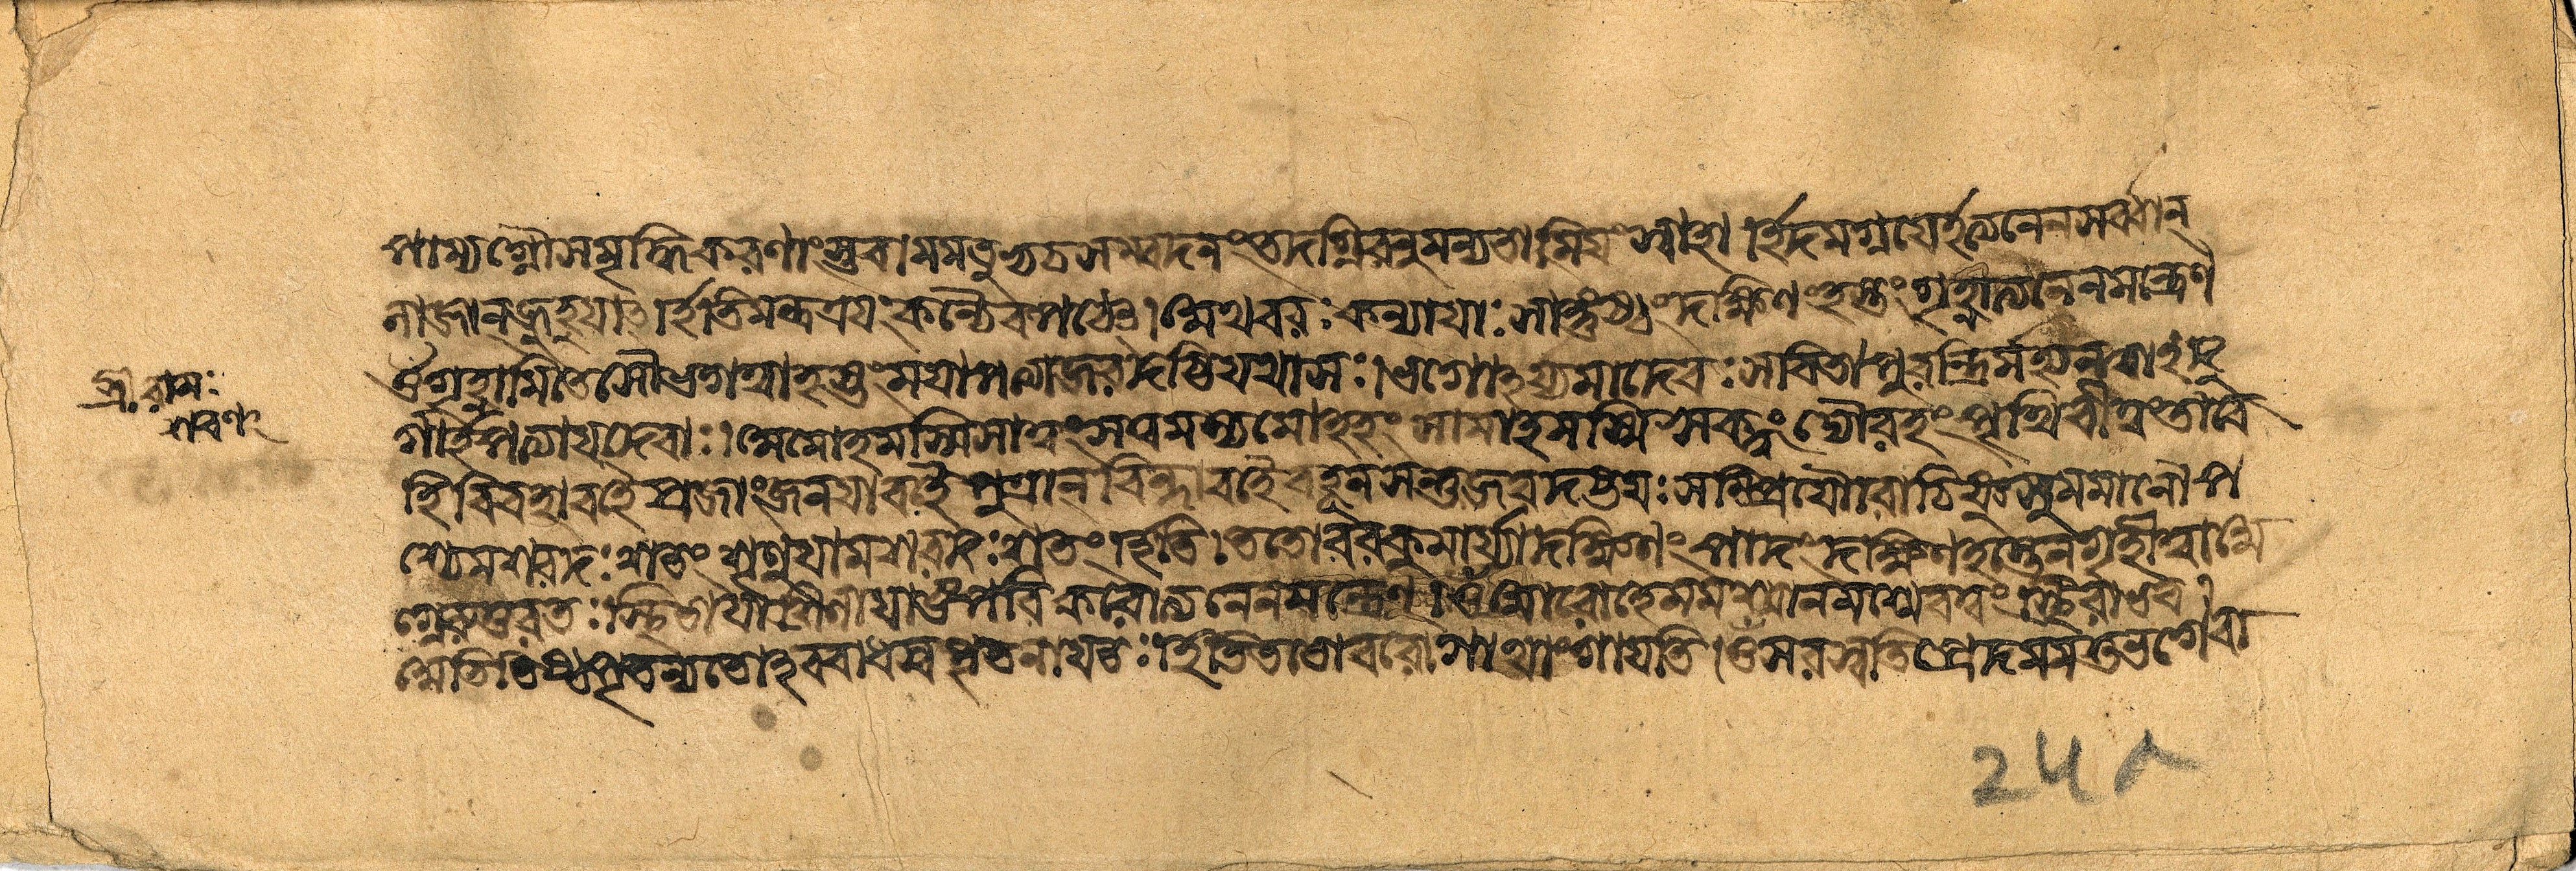 পাম্যগ্নৌসমৃদ্ধিকরণাংস্তুবামমতুভ্যঞ্চসম্বদনংতদগ্নিরনুমন্যতামিয়ংস্বাহা ইদমগ্নয়েইত্যনেনসর্ব্বান্
লাজান্জুহুয়াৎ ইতিমন্ত্রত্রয়ংকন্যৈবপঠেৎ। অথবরঃকন্যায়াঃসাঙ্গুষ্ঠংদক্ষিণংহস্তংগৃহ্ণাত্যনেনমন্ত্রেণ
ওঁগৃভ্ণামিতেসৌভগত্বায়হস্তংময়াপত্যাজরদষ্টির্যথাসঃ। ভগোঅর্য্যমাদেবঃসবিতাপুরন্ধির্মহ্যন্ত্বাদু
র্গার্হপত্যায়দেবাঃ। অমোহমস্মিসাত্বংসাত্বমস্যমোঅহং সামাহমস্মিঋক্ত্বংদ্যৌরহংপৃথিবীত্বংতাবে
হিবিবহাবহৈপ্রজাংজনয়াবহৈপুত্রান্বিন্দাবহৈবহূন্সন্তুজরদষ্টয়ঃসম্প্রিয়ৌরোচিষ্ণূসুমনস্যমানৌপ
শ্যেমশরদঃশতং শৃণুয়ামশরদঃশতং ইতি। ততোবরকুমার্য্যাদক্ষিণংপাদংদক্ষিণহস্তেনগৃহীত্বাঅ
গ্নেরুত্তরতঃ
আরোহেমমশ্মানমশ্মেবত্বংস্থিরাভব
অভিতিষ্ঠপৃতন্যতোঅববাধস্বপৃতনায়তঃ ইতিততোবরোগাথাংগায়তি। ওঁসরস্বতিপ্রেদমবসুভগেবা
শ্রীরামঃ
শরণং
24A